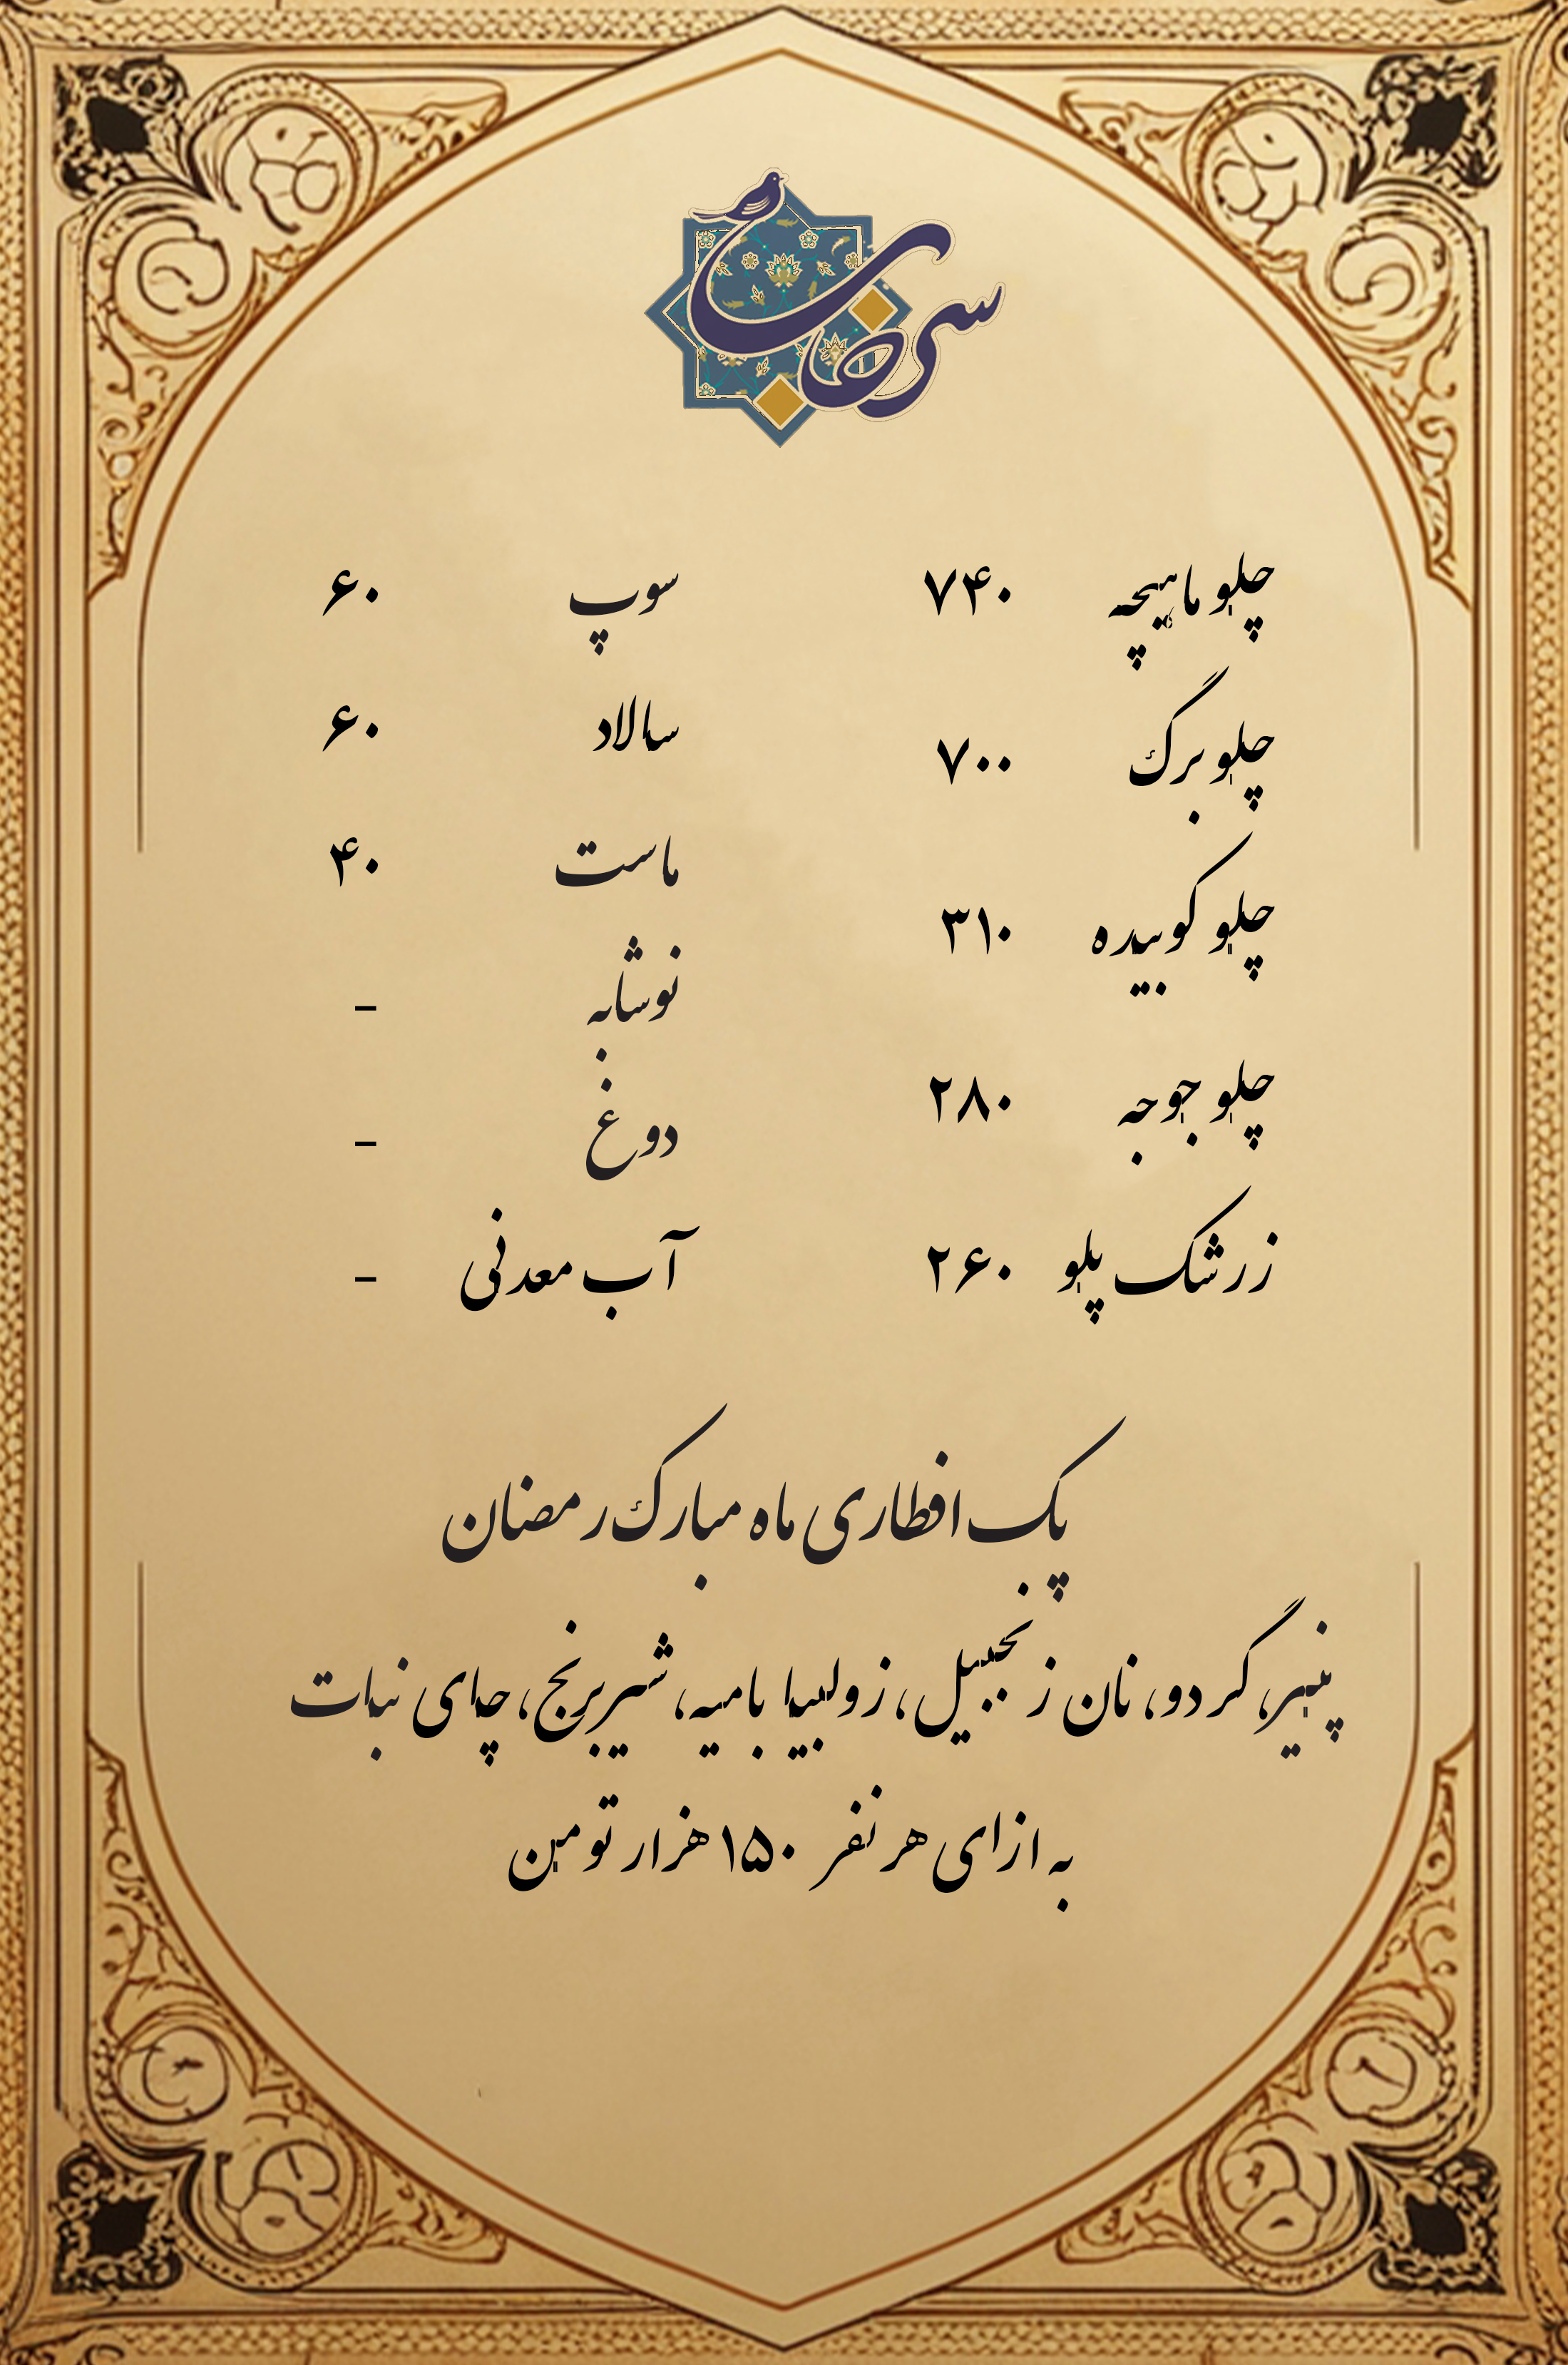 چلو ماهیچه ۷۴۰
چلو برگ ۷۰۰
چلو کوبیده ۳۱۰
چلو جوجه ۲۸۰
زرشک پلو ۲۶۰
سوپ ۶۰
سالاد ۶۰
ماست ۴۰
نوشابه -
دوغ -
آب معدنی -
پک افطاری ماه مبارک رمضان
پنیر، گردو، نان زنجبیل، زولبیا بامیه، شیربرنج، چای نبات
به ازای هر نفر ۱۵۰ هزار تومن